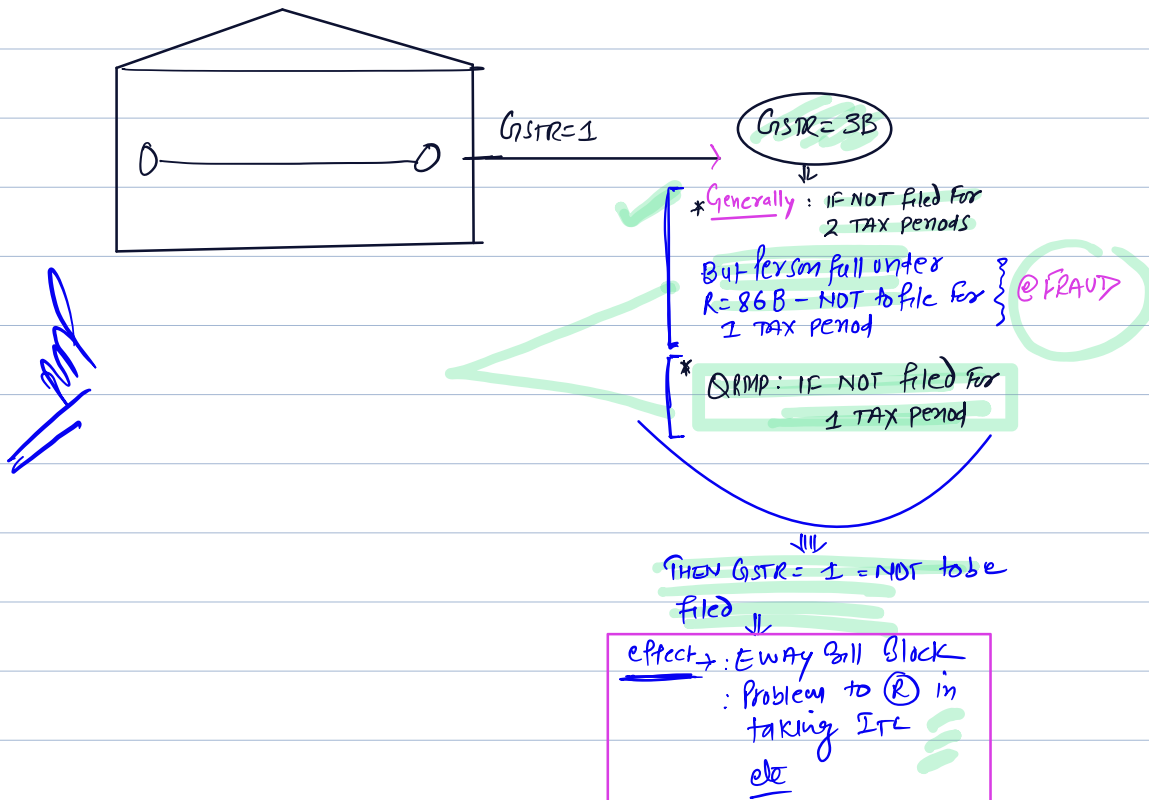 GSTR=1
GSTR= 3B
*Generally : IF NOT filed For
2 TAX Periods
But Person fall under
R=86B - NOT to file for
1 TAX Period
@FRAUD
* QRMP: IF NOT filed For
1 TAX Period
THEN GSTR= 1 =NOT to be
filed
effect → : EWAY Bill Block
: Problem to R in
taking ITC
etc